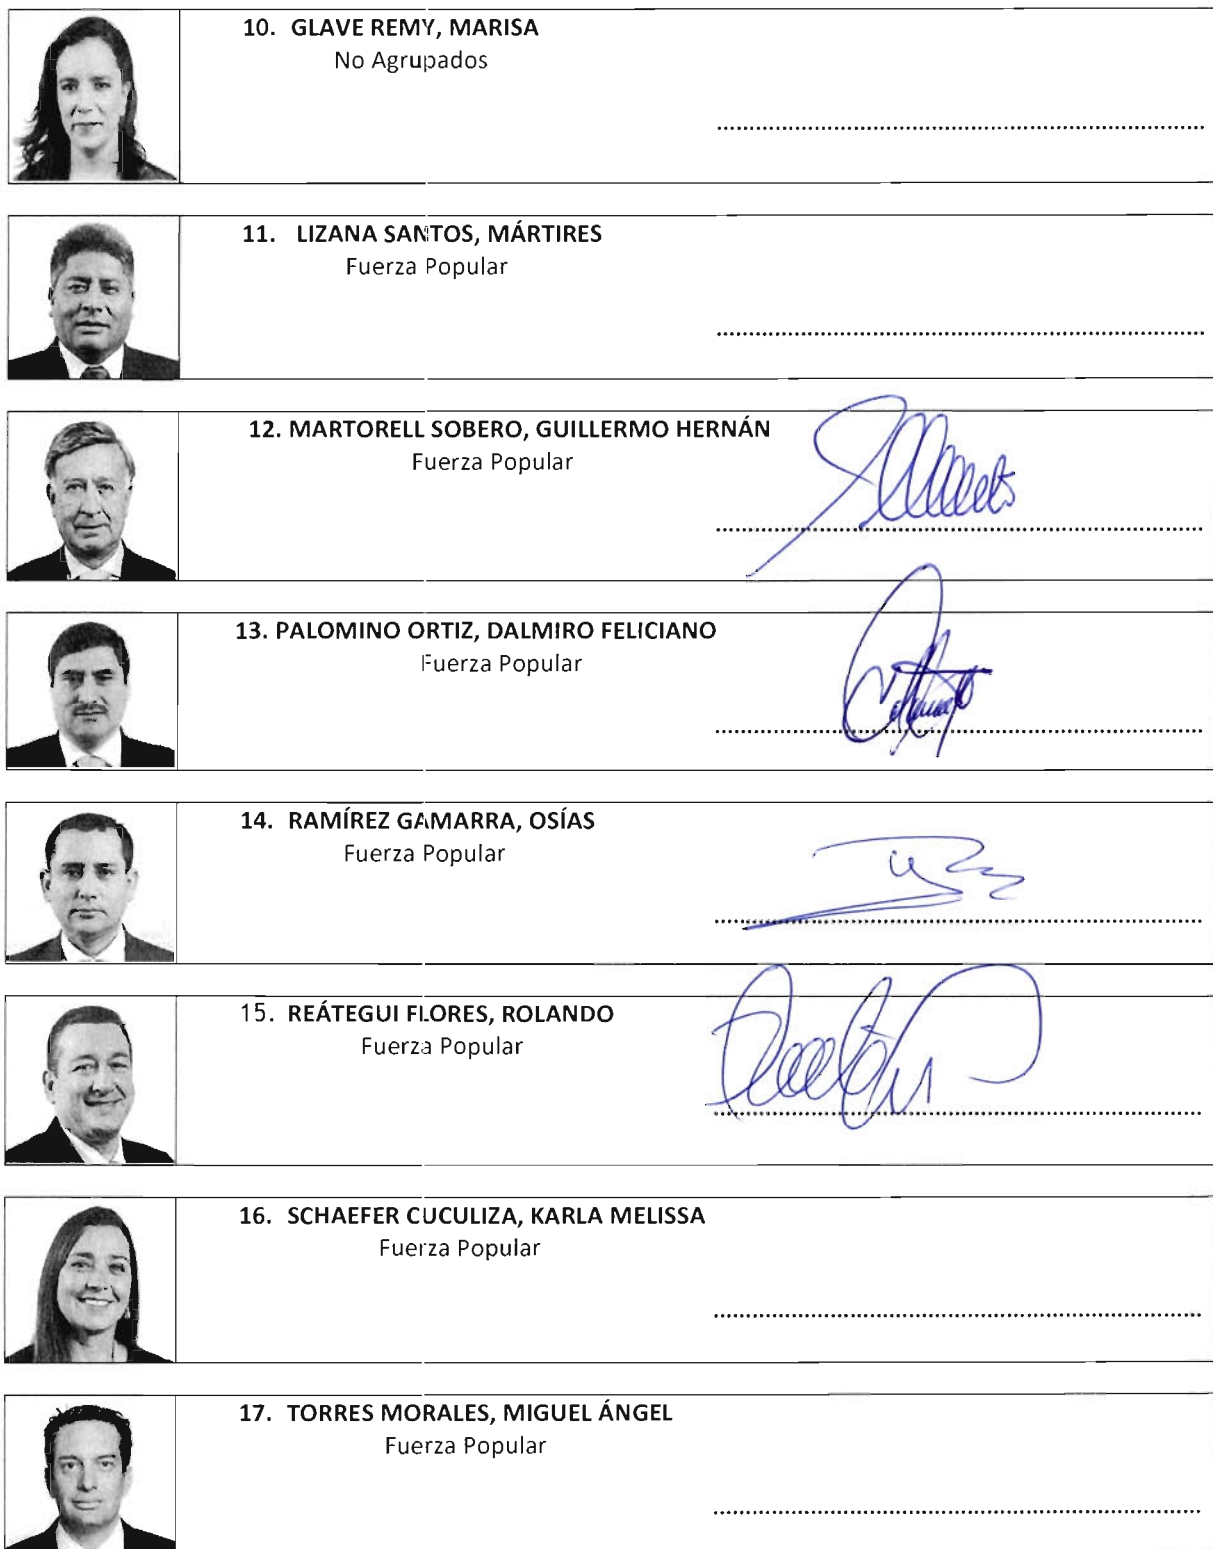 10. GLAVE REMY, MARISA
No Agrupados
11. LIZANA SANTOS, MÁRTIRES
Fuerza Popular
12. MARTORELL SOBERO, GUILLERMO HERNÁN
Fuerza Popular
13. PALOMINO ORTIZ, DALMIRO FELICIANO
Fuerza Popular
14. RAMÍREZ GAMARRA, OSÍAS
Fuerza Popular
15. REÁTEGUI FLORES, ROLANDO
Fuerza Popular
16. SCHAEFER CUCULIZA, KARLA MELISSA
Fuerza Popular
17. TORRES MORALES, MIGUEL ÁNGEL
Fuerza Popular